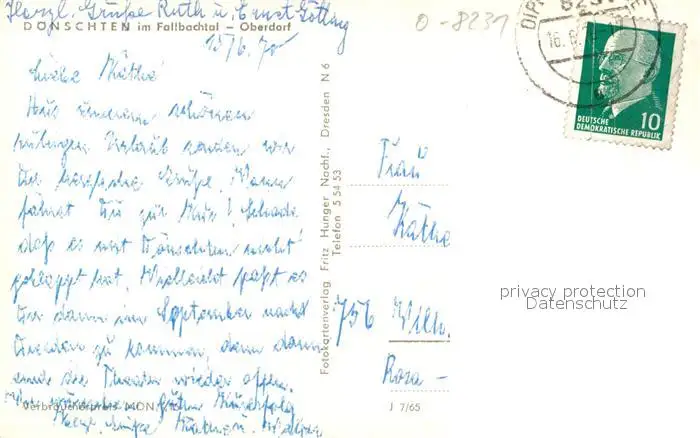 Herzl. Grüße Ruth u. Ernst Götting
DÖNSCHTEN im Fallbachtal - Oberdorf
15/6. 70
O-8231
Liebe Käthe!
Aus unserem schönen
ruhigen Urlaub senden wir
Dir herzliche Grüße. Wann
fährst Du zur Kur? Schade
daß es mit Dönschten nicht
geklappt hat. Vielleicht paßt es
Dir dann im September nach
Dresden zu kommen, denn dann
sind die Theater wieder offen.
Wir wünschen guten Kurerfolg
Herzl. Grüße
Verbraucherpreis MDN
Fotokartenverlag Fritz Hunger Nachf., Dresden N 6
Telefon 5 54 53
J 7/65
Frau
Käthe
756 Wilh.
Rosa-
DIP
8231
16.6.
10
DEUTSCHE
DEMOKRATISCHE REPUBLIK
privacy protection
Datenschutz